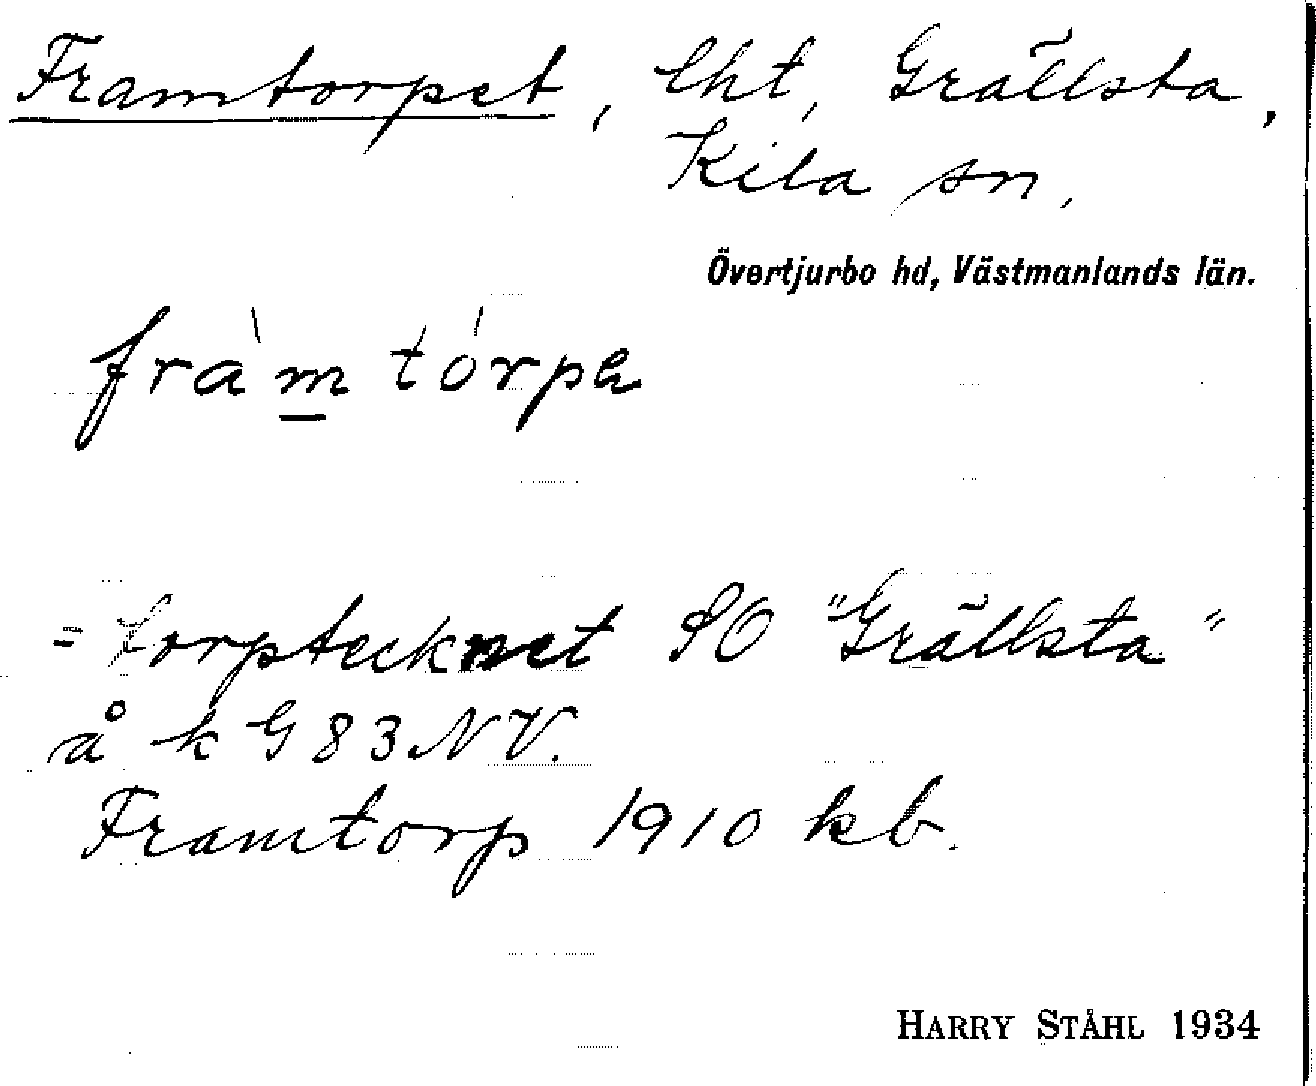 Framtorpet, lht, Grällsta,
Kila sn,
Övertjurbo hd, Västmanlands län.
fràm tórpe
= torptecknet SO "Grällsta"
å k G 83 NV.
Framtorp 1910 kb.
HARRY STÅHL 1934